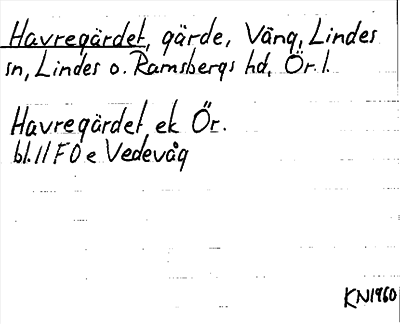 Havregärdet, gärde, Väng, Lindes
sn, Lindes o. Ramsbergs hd, Ör. l.
Havregärdet ek Ör.
bl. 11 F 0 e Vedevåg
KN1960